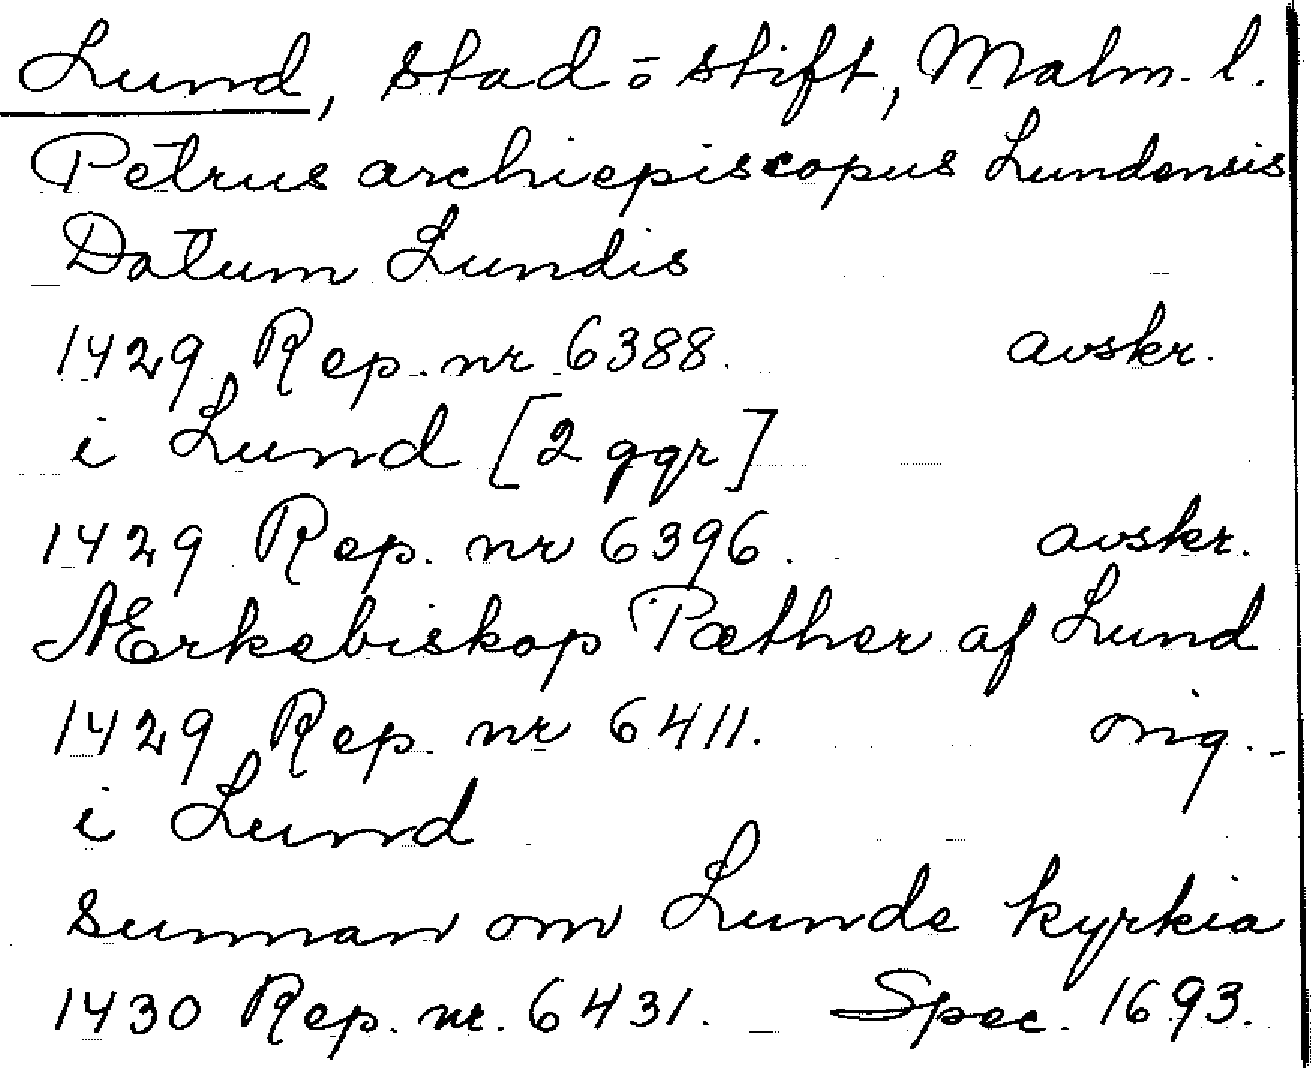 Lund, stad o stift, Malm. l.
Petrus archiepiscopus Lundensis
Datum Lundis
1429 Rep. nr 6388. avskr.
i Lund [2 ggr]
1429 Rep. nr 6396. avskr.
Ærkebiskop Pæther af Lund
1429 Rep. nr 6411. orig.
i Lund
sunnan om Lunde kyrkia
1430 Rep. nr. 6431. Spec. 1693.